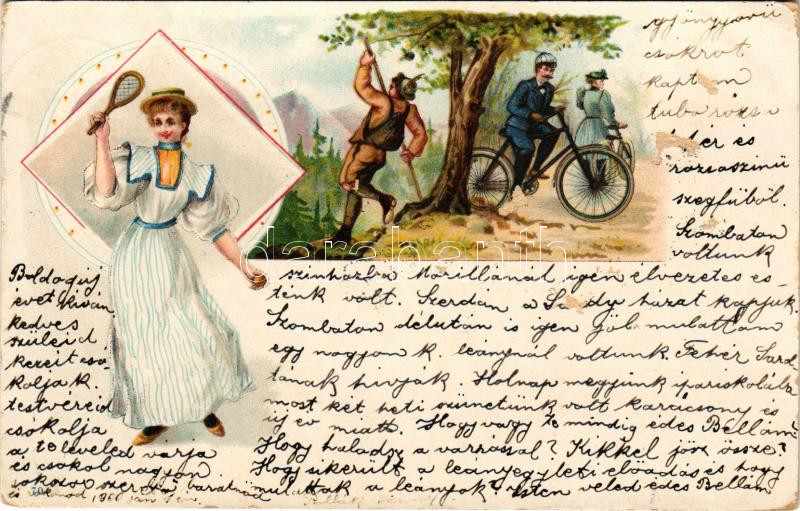 gyönyörü
csokrot
kaptam
tuba rózsa
fehér és
rózsaszinü
szegfüböl.
Szombaton
voltunk
szinházba Morillánál igen élvezetes es-
ténk volt. Szerdán a Sándy házat kapjuk.
Szombaton délután is igen jól mulattam
egy nagyon k. leánynál voltunk. Fehér Sarol
tának hivják. Holnap megyünk ipariskolába
most két heti szünetünk volt karácsony és
uj év miatt. Hogy vagy te mindig édes Bellám?
Hogy haladsz a varrással? Kikkel jösz össze?
Hogy sikerült a leányegyleti elöadás és hogy
mulattak a leányok? Isten veled édes Bellám
Boldog uj
évet kiván
kedves
szüleid
kezeit csó
kolják
testvéreid
csókolja
a te leveled várja
és csókol nagyon
sokszor szeretö barátnöd
darabanth